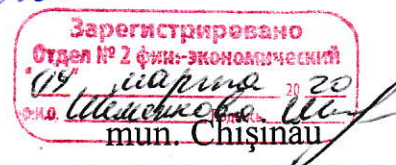 Зарегистрировано
Отдел № 2 фин.-экономический
"04" марта 20 20
Ф.И.О. Шеменкова
mun. Chișinău